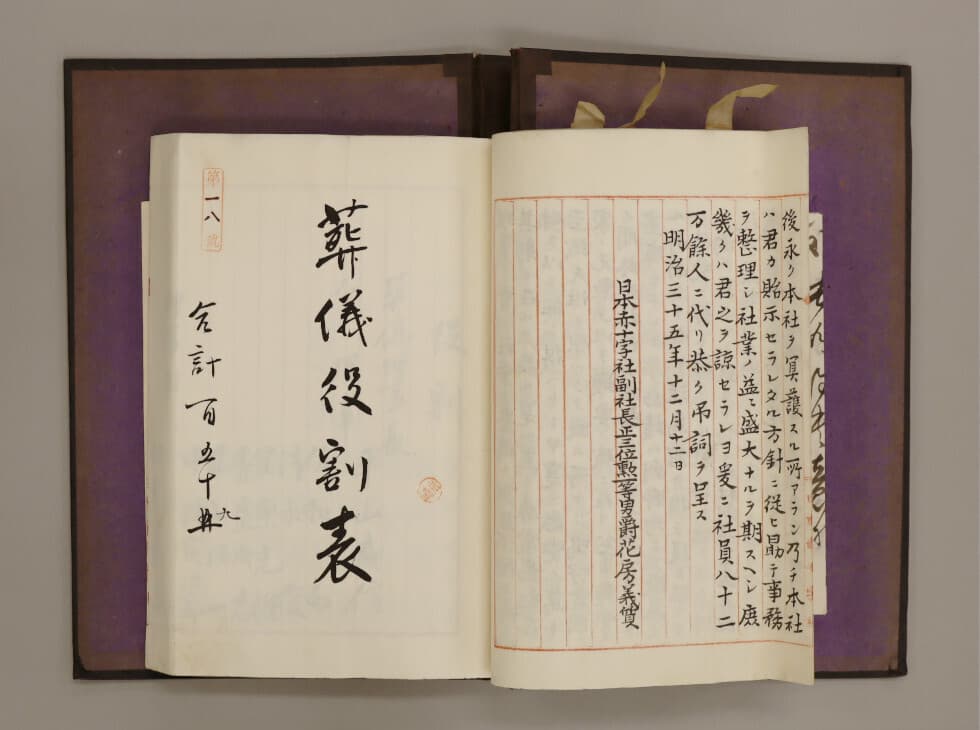 後永ク本社ヲ冥護スル所アラン乃チ本社
ハ君カ貽示セラレタル方針ニ従ヒ勗テ事務
ヲ整理シ社業ノ益〻盛大ナルヲ期スヘシ庶
幾クハ君之ヲ諒セラレヨ爰ニ社員八十二
万餘人ニ代リ恭ク吊詞ヲ呈ス
明治三十五年十二月十二日
日本赤十字社副社長正三位勲一等男爵花房義質
葬儀役割表
合計百五十九
第一八號